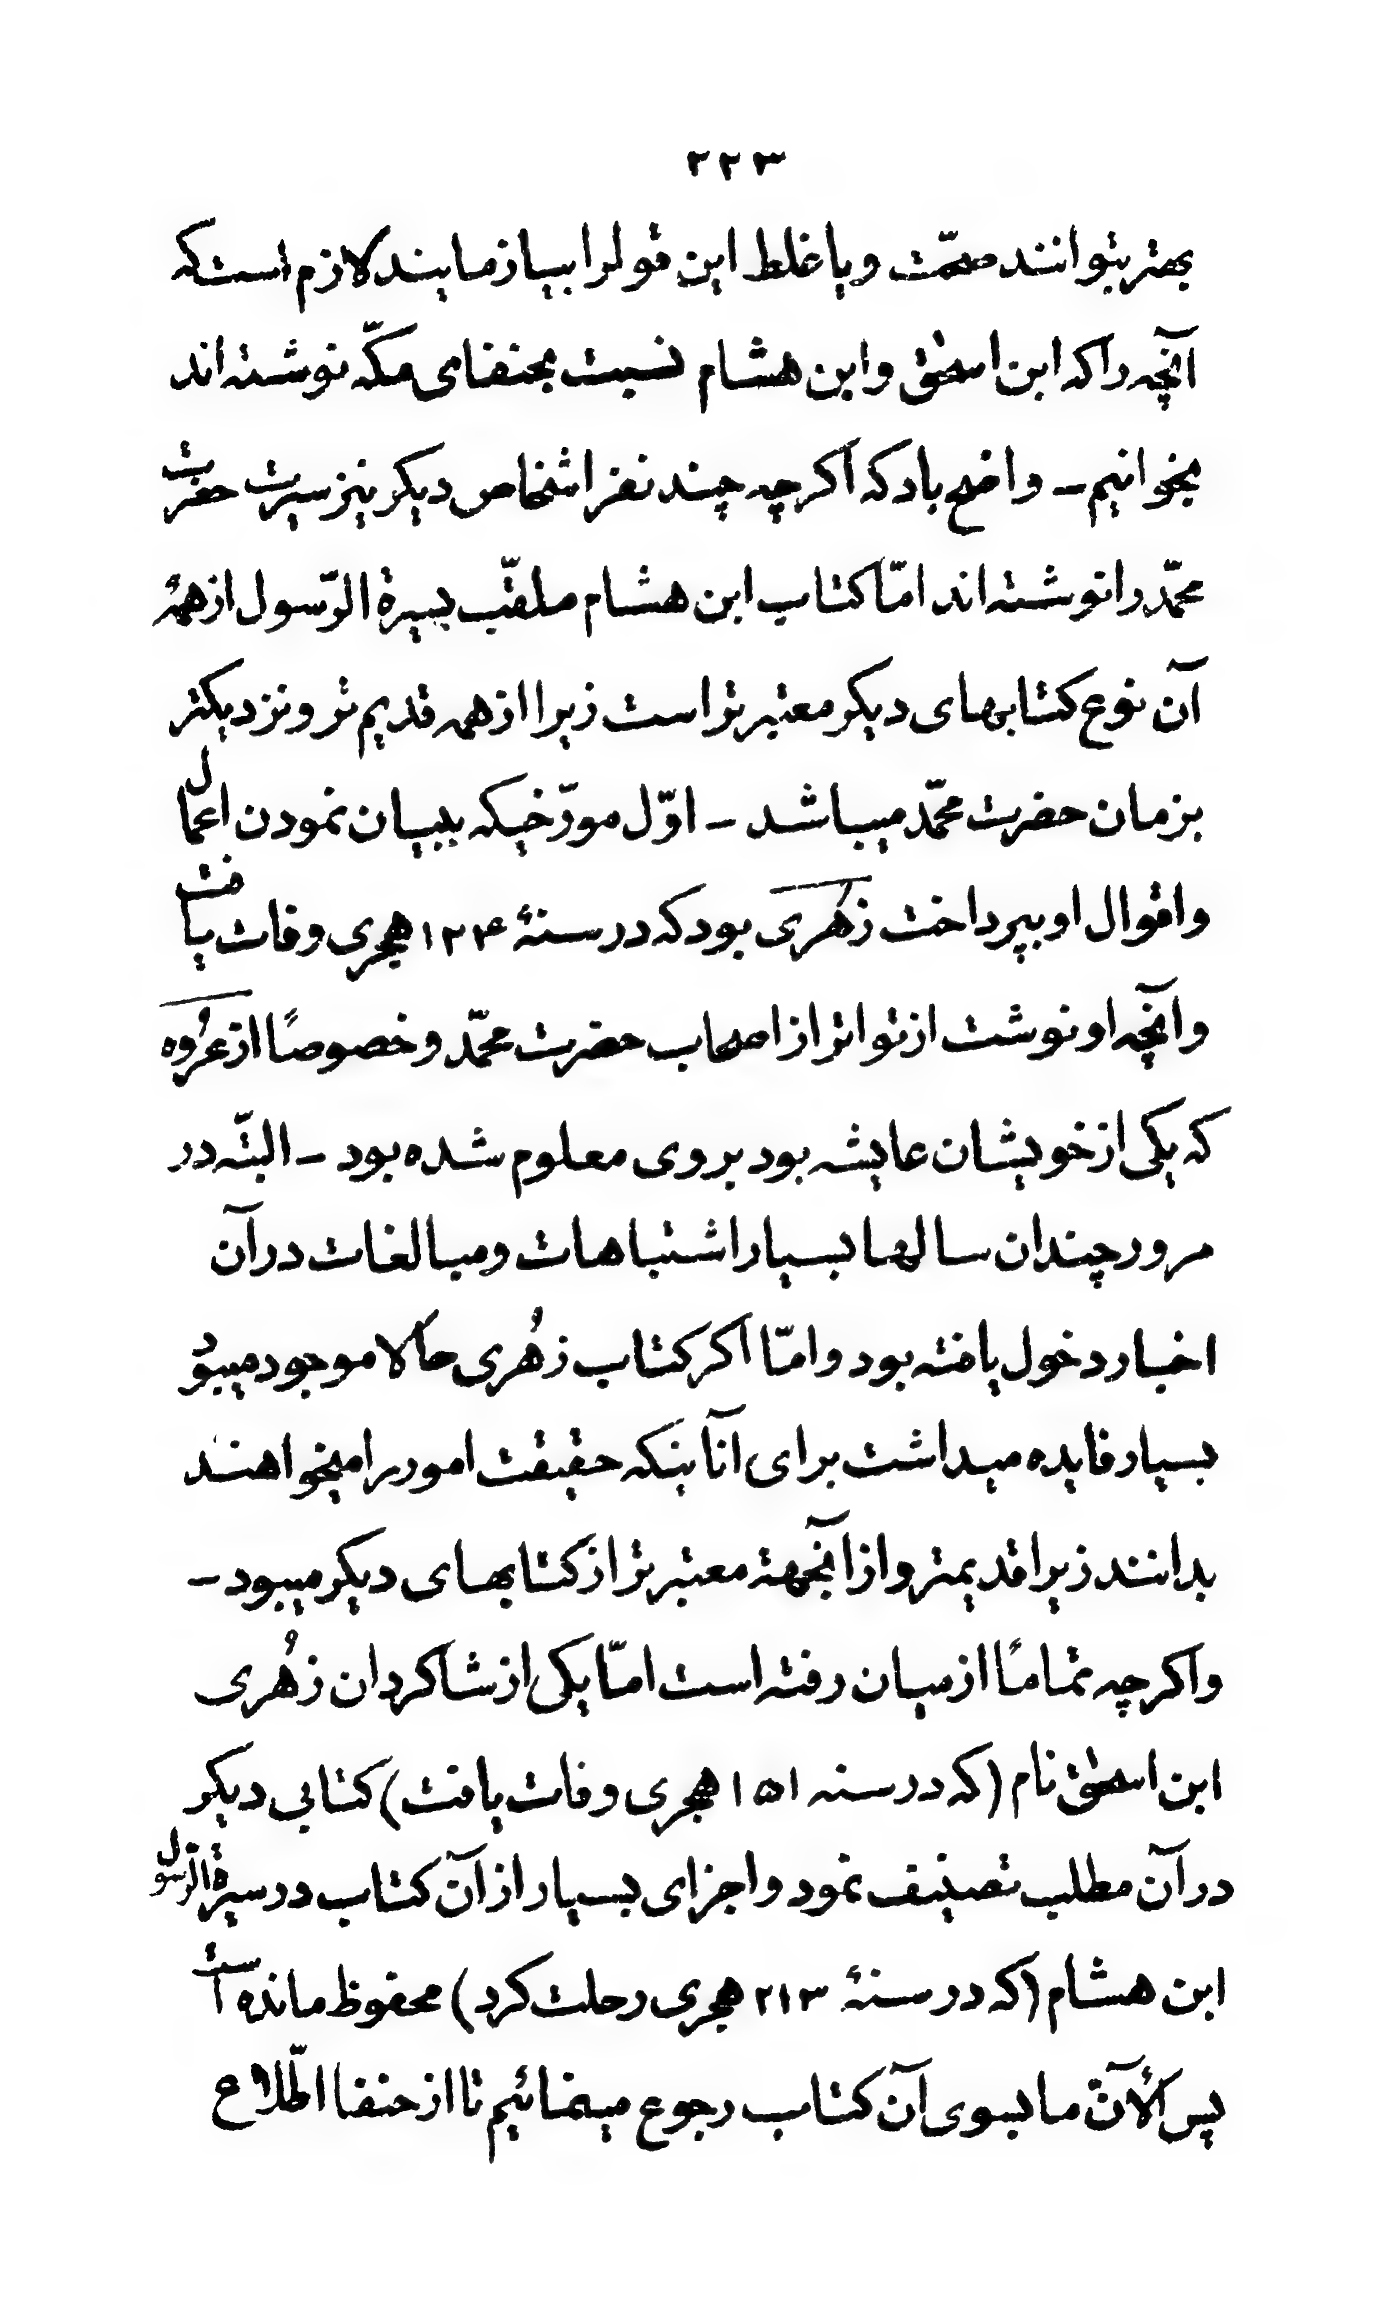 ۲۲۳
بهتر بتوانند صحّت و یا غلط این قولرا بیازمایند لازم است که
آنچه را که ابن اسحٰق و ابن هشام نسبت بحنفای مکّه نوشته اند
بخوانیم – واضح باد که اکرچه چند نفر اشخاص دیکر نیز سیرت حضرت
محمّد را نوشته اند امّا کتاب ابن هشام ملقّب بسیرة الرّسول از همهٔ
آن نوع کتابهای دیکر معتبر تر است زیرا از همه قدیم تر و نزدیکتر
بزمان حضرت محمّد میباشد – اوّل مورّخیکه ببیان نمودن اعمال
و اقوال او بپرداخت زهری بود که در سنهٔ ۱۲۴ هجری وفات یافت
و آنچه او نوشت از تواتر از اصحاب حضرت محمّد و خصوصًا از عُروه
که یکی از خویشان عایشه بود بر وی معلوم شده بود – البتّه در
مرور چندان سالها بسیار اشتباهات و مبالغات در آن
اخبار دخول یافته بود و امّا اکر کتاب زُهری حالا موجود میبود
بسیار فایده میداشت برای آنانیکه حقیقت امور را میخواهند
بدانند زیرا قدیمتر و از آنجهة معتبر تر از کتابهای دیکر میبود –
و اکرچه تمامًا از میان رفته است امّا یکی از شاکردان زُهری
ابن اسحٰق نام (که در سنه ۱۵۱ هجری وفات یافت) کتابی دیکر
در آن مطلب تصنیف نمود و اجزای بسیار از آن کتاب در سیرة الرّسول
ابن هشام (که در سنهٔ ۲۱۳ هجری رحلت کرد) محفوظ مانده است
پس الآن ما بسوی آن کتاب رجوع مینمائیم تا از حنفا اطّلاع